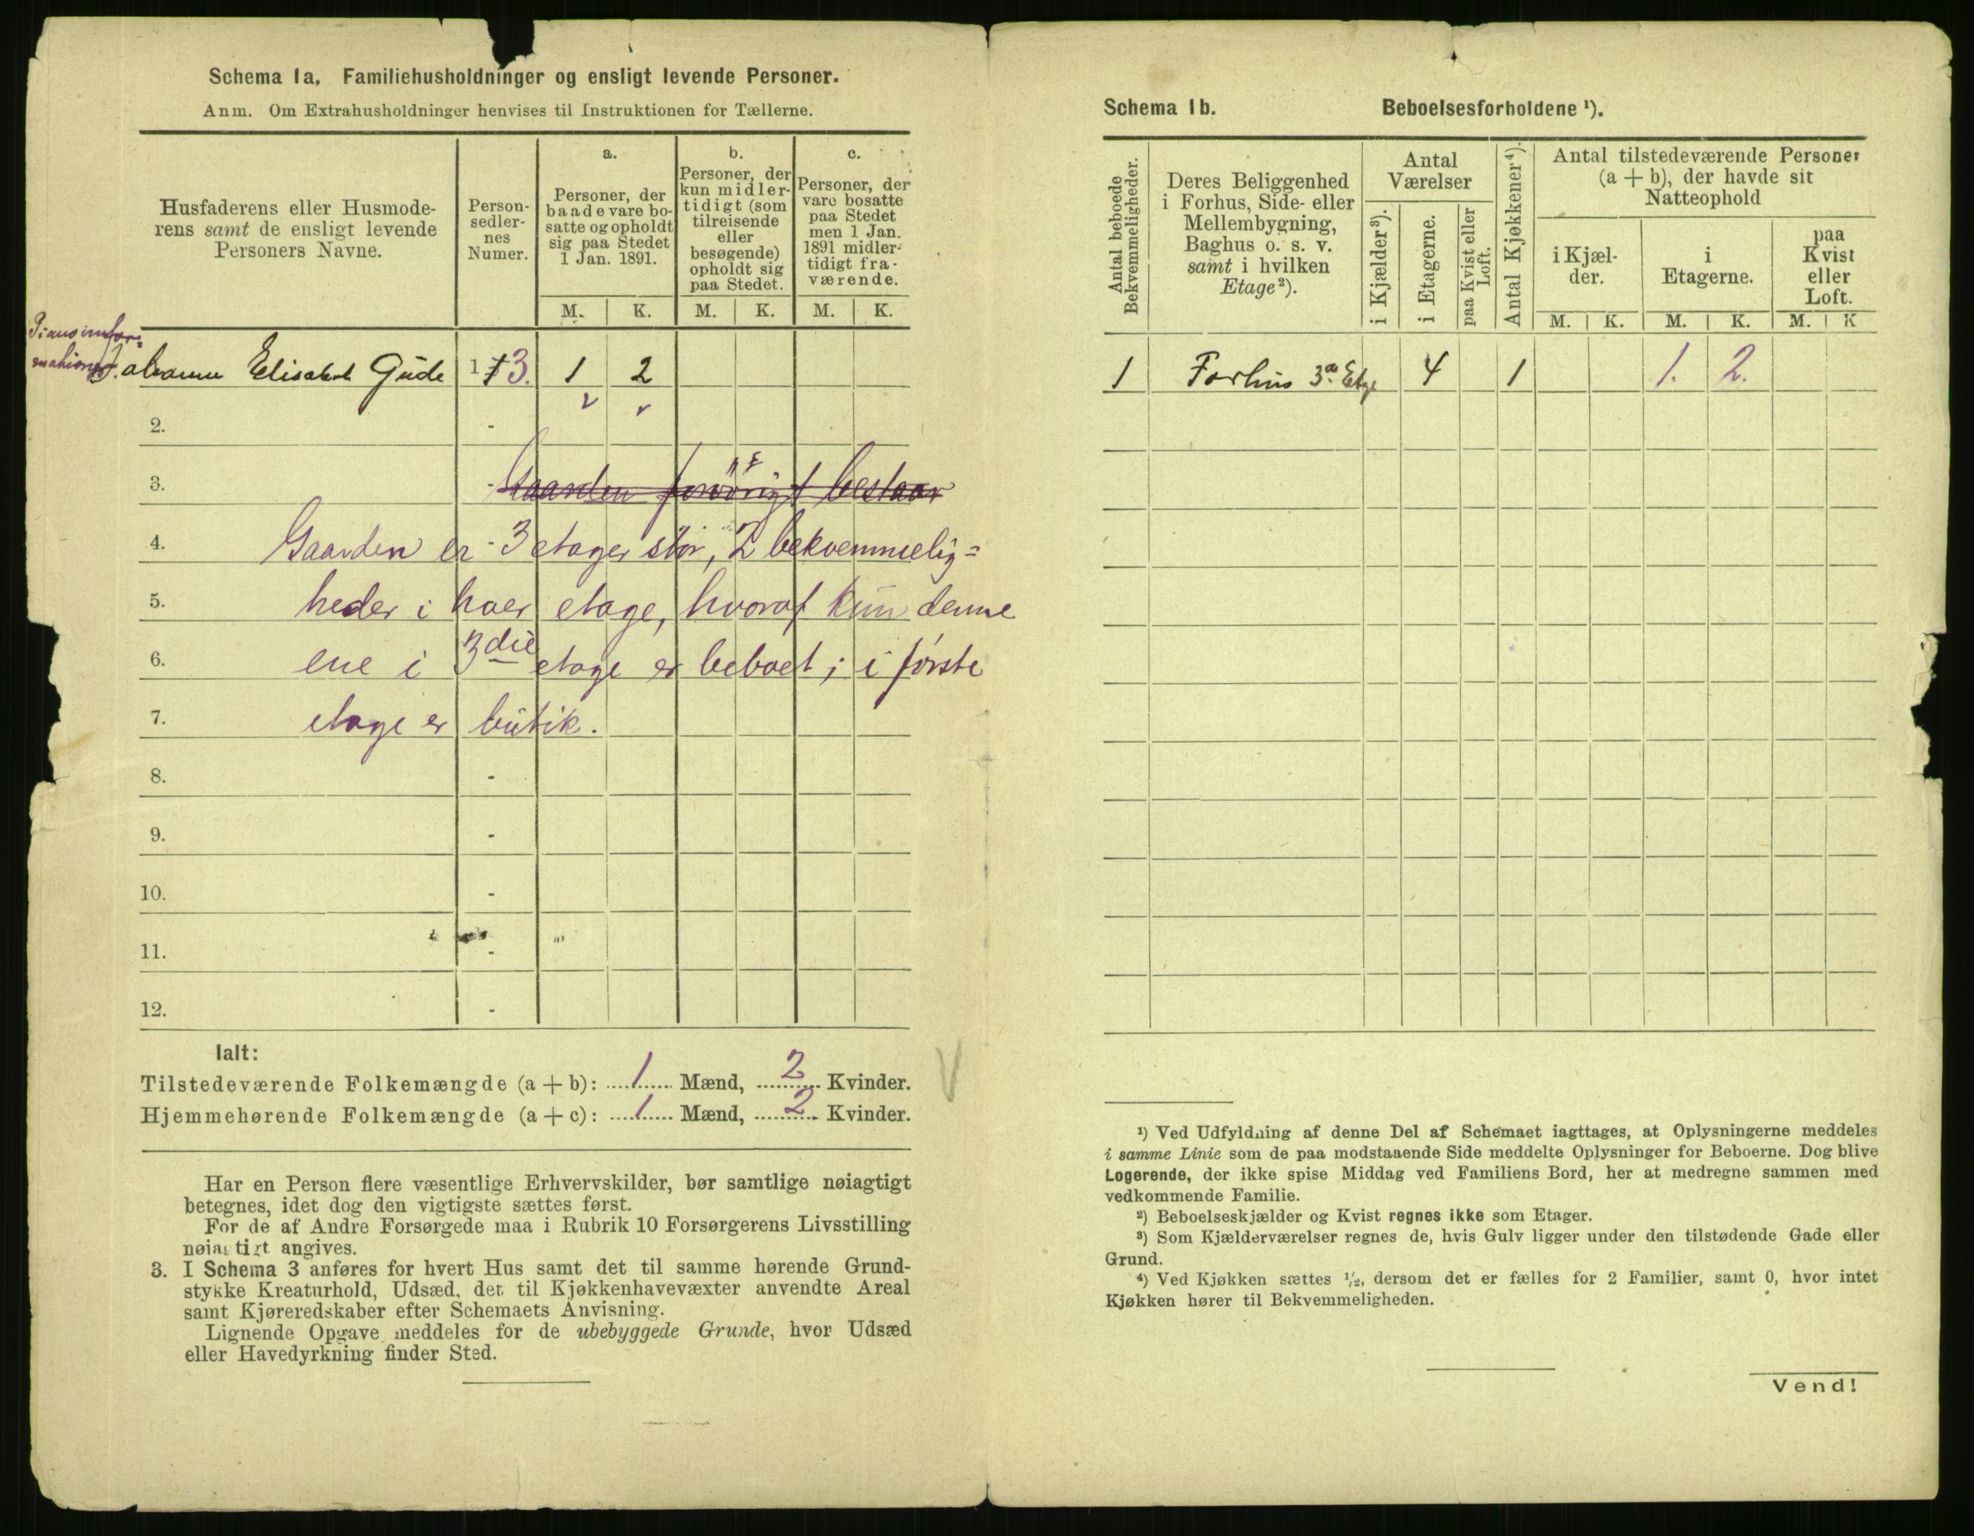 Schema 1a. Familiehusholdninger og ensligt levende Personer.
Anm. Om Extrahusholdninger henvises til Instruktionen for Tællerne.
Husfaderens eller Husmode-
rens samt de ensligt levende
Personers Navne.
Person-
sedler-
nes
Numer.
a.
Personer, der
baade vare bo-
satte og opholdt
sig paa Stedet
1 Jan. 1891.
b.
Personer, der
kun midler-
tidigt (som
tilreisende
eller
besøgende)
opholdt sig
paa Stedet.
c.
Personer, der
vare bosatte
paa Stedet
men 1 Jan.
1891 midler-
tidigt fra-
værende.
M. K. M. K. M. K.
Elisabeth Gude 1 - 3. 1 2
2. -
3. - Gaarden forøvrigt bestaar
4. Gaarden er 3 etager stor, 2 bekvemmelig=
5. heder i hver etage, hvoraf kun denne
6. ene i 3die etage er beboet; i første
7. etage er butik.
8. -
9. -
10. -
11. -
12. -
Ialt:
Tilstedeværende Folkemængde (a + b): 1 Mænd, 2 Kvinder.
Hjemmehørende Folkemængde (a + c): 1 Mænd, 2 Kvinder.
Har en Person flere væsentlige Erhvervskilder, bør samtlige nøiagtigt
betegnes, idet dog den vigtigste sættes først.
For de af Andre Forsørgede maa i Rubrik 10 Forsørgerens Livsstilling
nøiagtigt angives.
3. I Schema 3 anføres for hvert Hus samt det til samme hørende Grund-
stykke Kreaturhold, Udsæd, det til Kjøkkenhavevæxter anvendte Areal
samt Kjøreredskaber efter Schemaets Anvisning.
Lignende Opgave meddeles for de ubebyggede Grunde, hvor Udsæd
eller Havedyrkning finder Sted.
Schema 1b. Beboelsesforholdene ¹).
Antal beboede
Bekvemmeligheder.
Deres Beliggenhed
i Forhus, Side- eller
Mellembygning,
Baghus o. s. v.
samt i hvilken
Etage²).
Antal
Værelser
i Kjælder³).
i Etagerne.
paa Kvist eller
Loft.
Antal Kjøkkener⁴).
Antal tilstedeværende Personer
(a + b), der havde sit
Natteophold
i Kjæl-
der.
i
Etagerne.
paa
Kvist
eller
Loft.
M. K. M. K. M. K
1 Forhus 3die Etge 4 1 1. 2.
¹) Ved Udfyldning af denne Del af Schemaet iagttages, at Oplysningerne meddeles
i samme Linie som de paa modstaaende Side meddelte Oplysninger for Beboerne. Dog blive
Logerende, der ikke spise Middag ved Familiens Bord, her at medregne sammen med
vedkommende Familie.
²) Beboelseskjælder og Kvist regnes ikke som Etager.
³) Som Kjælderværelser regnes de, hvis Gulv ligger under den tilstødende Gade eller
Grund.
⁴) Ved Kjøkken sættes ½, dersom det er fælles for 2 Familier, samt 0, hvor intet
Kjøkken hører til Bekvemmeligheden.
Vend!